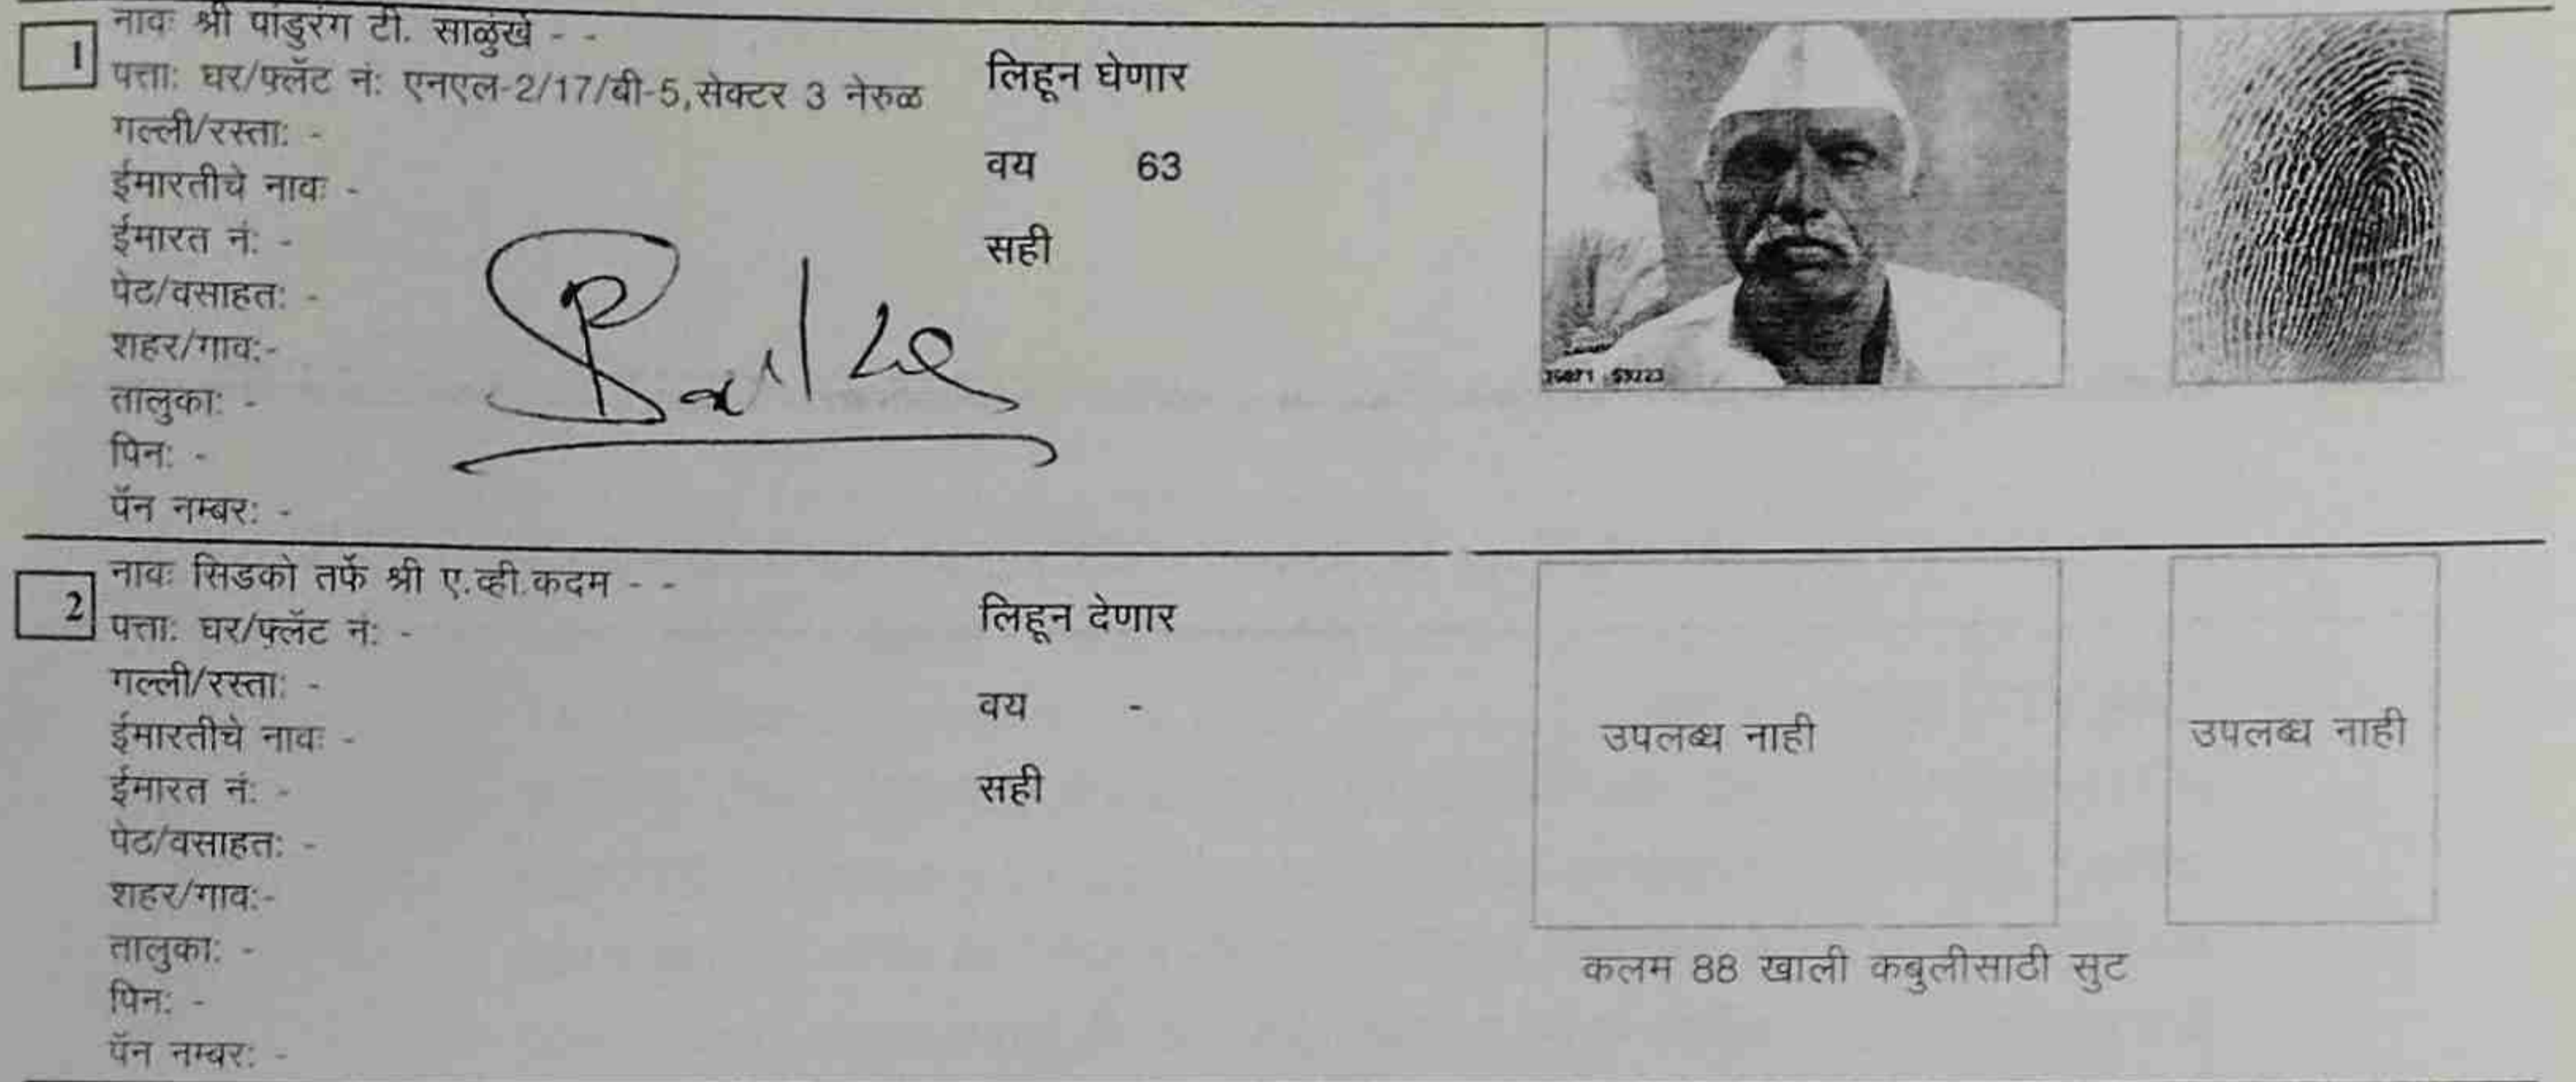 1
नावः श्री पांडुरंग टी. साळुंखे - -
पत्ताः घर/फ्लॅट नंः एनएल-2/17/बी-5,सेक्टर 3 नेरुळ
गल्ली/रस्ताः -
ईमारतीचे नावः -
ईमारत नंः -
पेट/वसाहतः -
शहर/गावः-
तालुकाः -
पिनः -
पॅन नम्बरः -
लिहून घेणार
वय 63
सही
2
नावः सिडको तर्फे श्री ए.व्ही.कदम - -
पत्ताः घर/फ्लॅट नंः -
गल्ली/रस्ताः -
ईमारतीचे नावः -
ईमारत नंः -
पेट/वसाहतः -
शहर/गावः-
तालुकाः -
पिनः -
पॅन नम्बरः -
लिहून देणार
वय -
सही
उपलब्ध नाही
उपलब्ध नाही
कलम 88 खाली कबुलीसाठी सुट